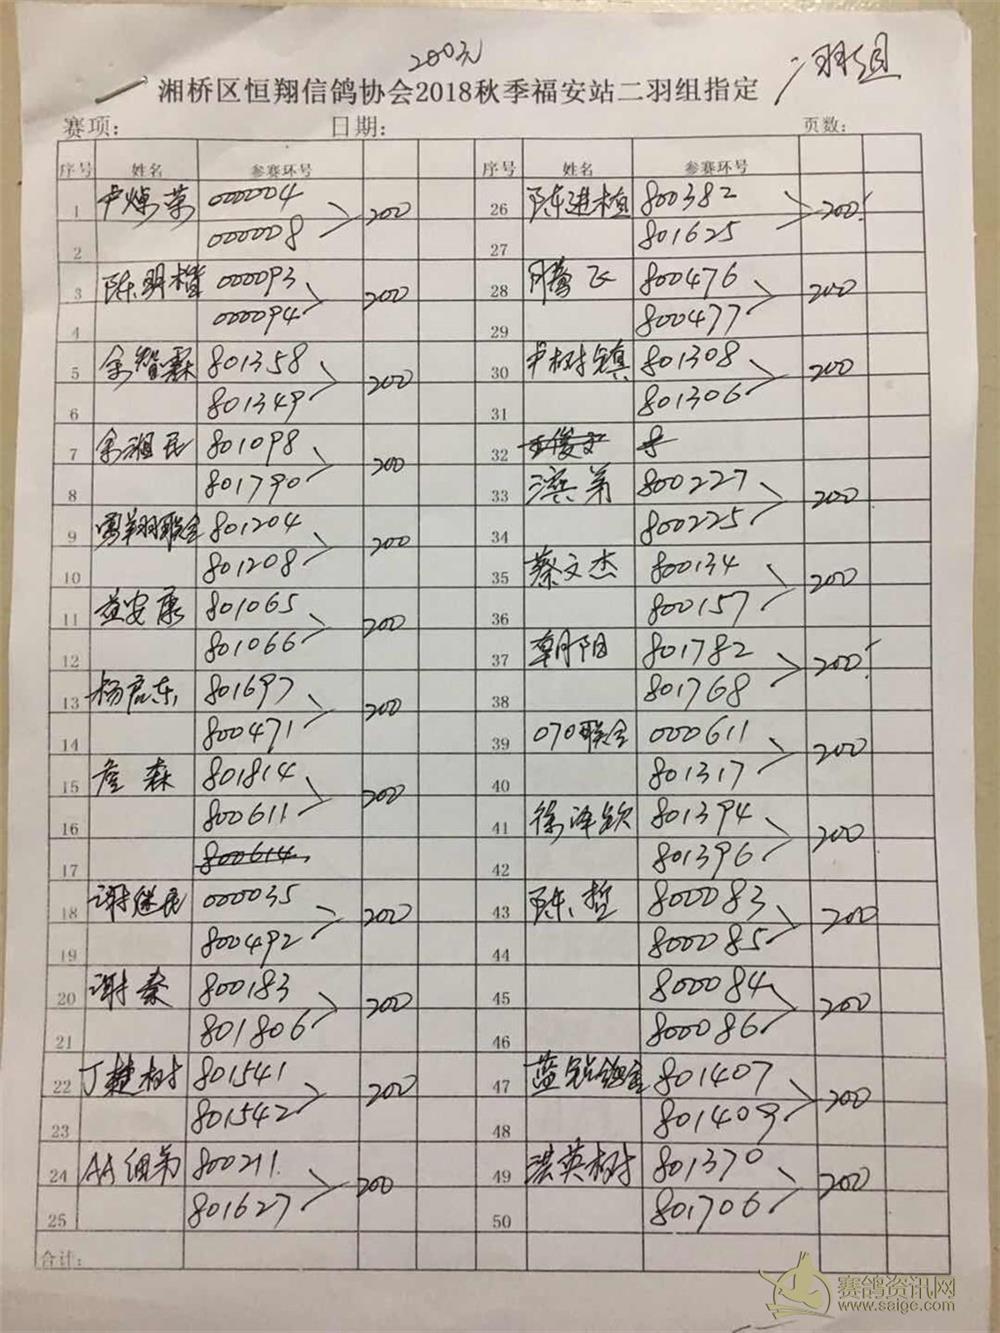 200元
二羽组
湘桥区恒翔信鸽协会2018秋季福安站二羽组指定
赛项: 日期: 页数:
序号 姓名 参赛环号 序号 姓名 参赛环号
1 尹焕荣 000004 200 26 陈进植 800382 200
2 000008 27 801625
3 陈明楷 000093 200 28 腾飞 800476 200
4 000094 29 800477
5 余智霖 801358 200 30 尹树镇 801308 200
6 801349 31 801306
7 余湘民 801098 200 32
8 801790 33 滨弟 800227 200
9 翔联合 801204 200 34 800225
10 801208 35 蔡文杰 800134 200
11 益安康 801065 200 36 800157
12 801066 37 朝阳 801782 200
13 杨启东 801697 200 38 801768
14 800471 39 070联合 000611 200
15 詹森 801814 200 40 801317
16 800611 41 徐泽钦 801394 200
17 800614 42 801396
18 谢继民 000035 200 43 陈哲 800083 200
19 800492 44 800085
20 谢泰 800183 200 45 800084 200
21 801806 46 800086
22 丁楚树 801541 200 47 蓝钻鸽舍 801407 200
23 801542 48 801409
24 AA细弟 800211 200 49 洪英树 801370 200
25 801627 50 801706
合计:
赛鸽资讯网
www.saige.com